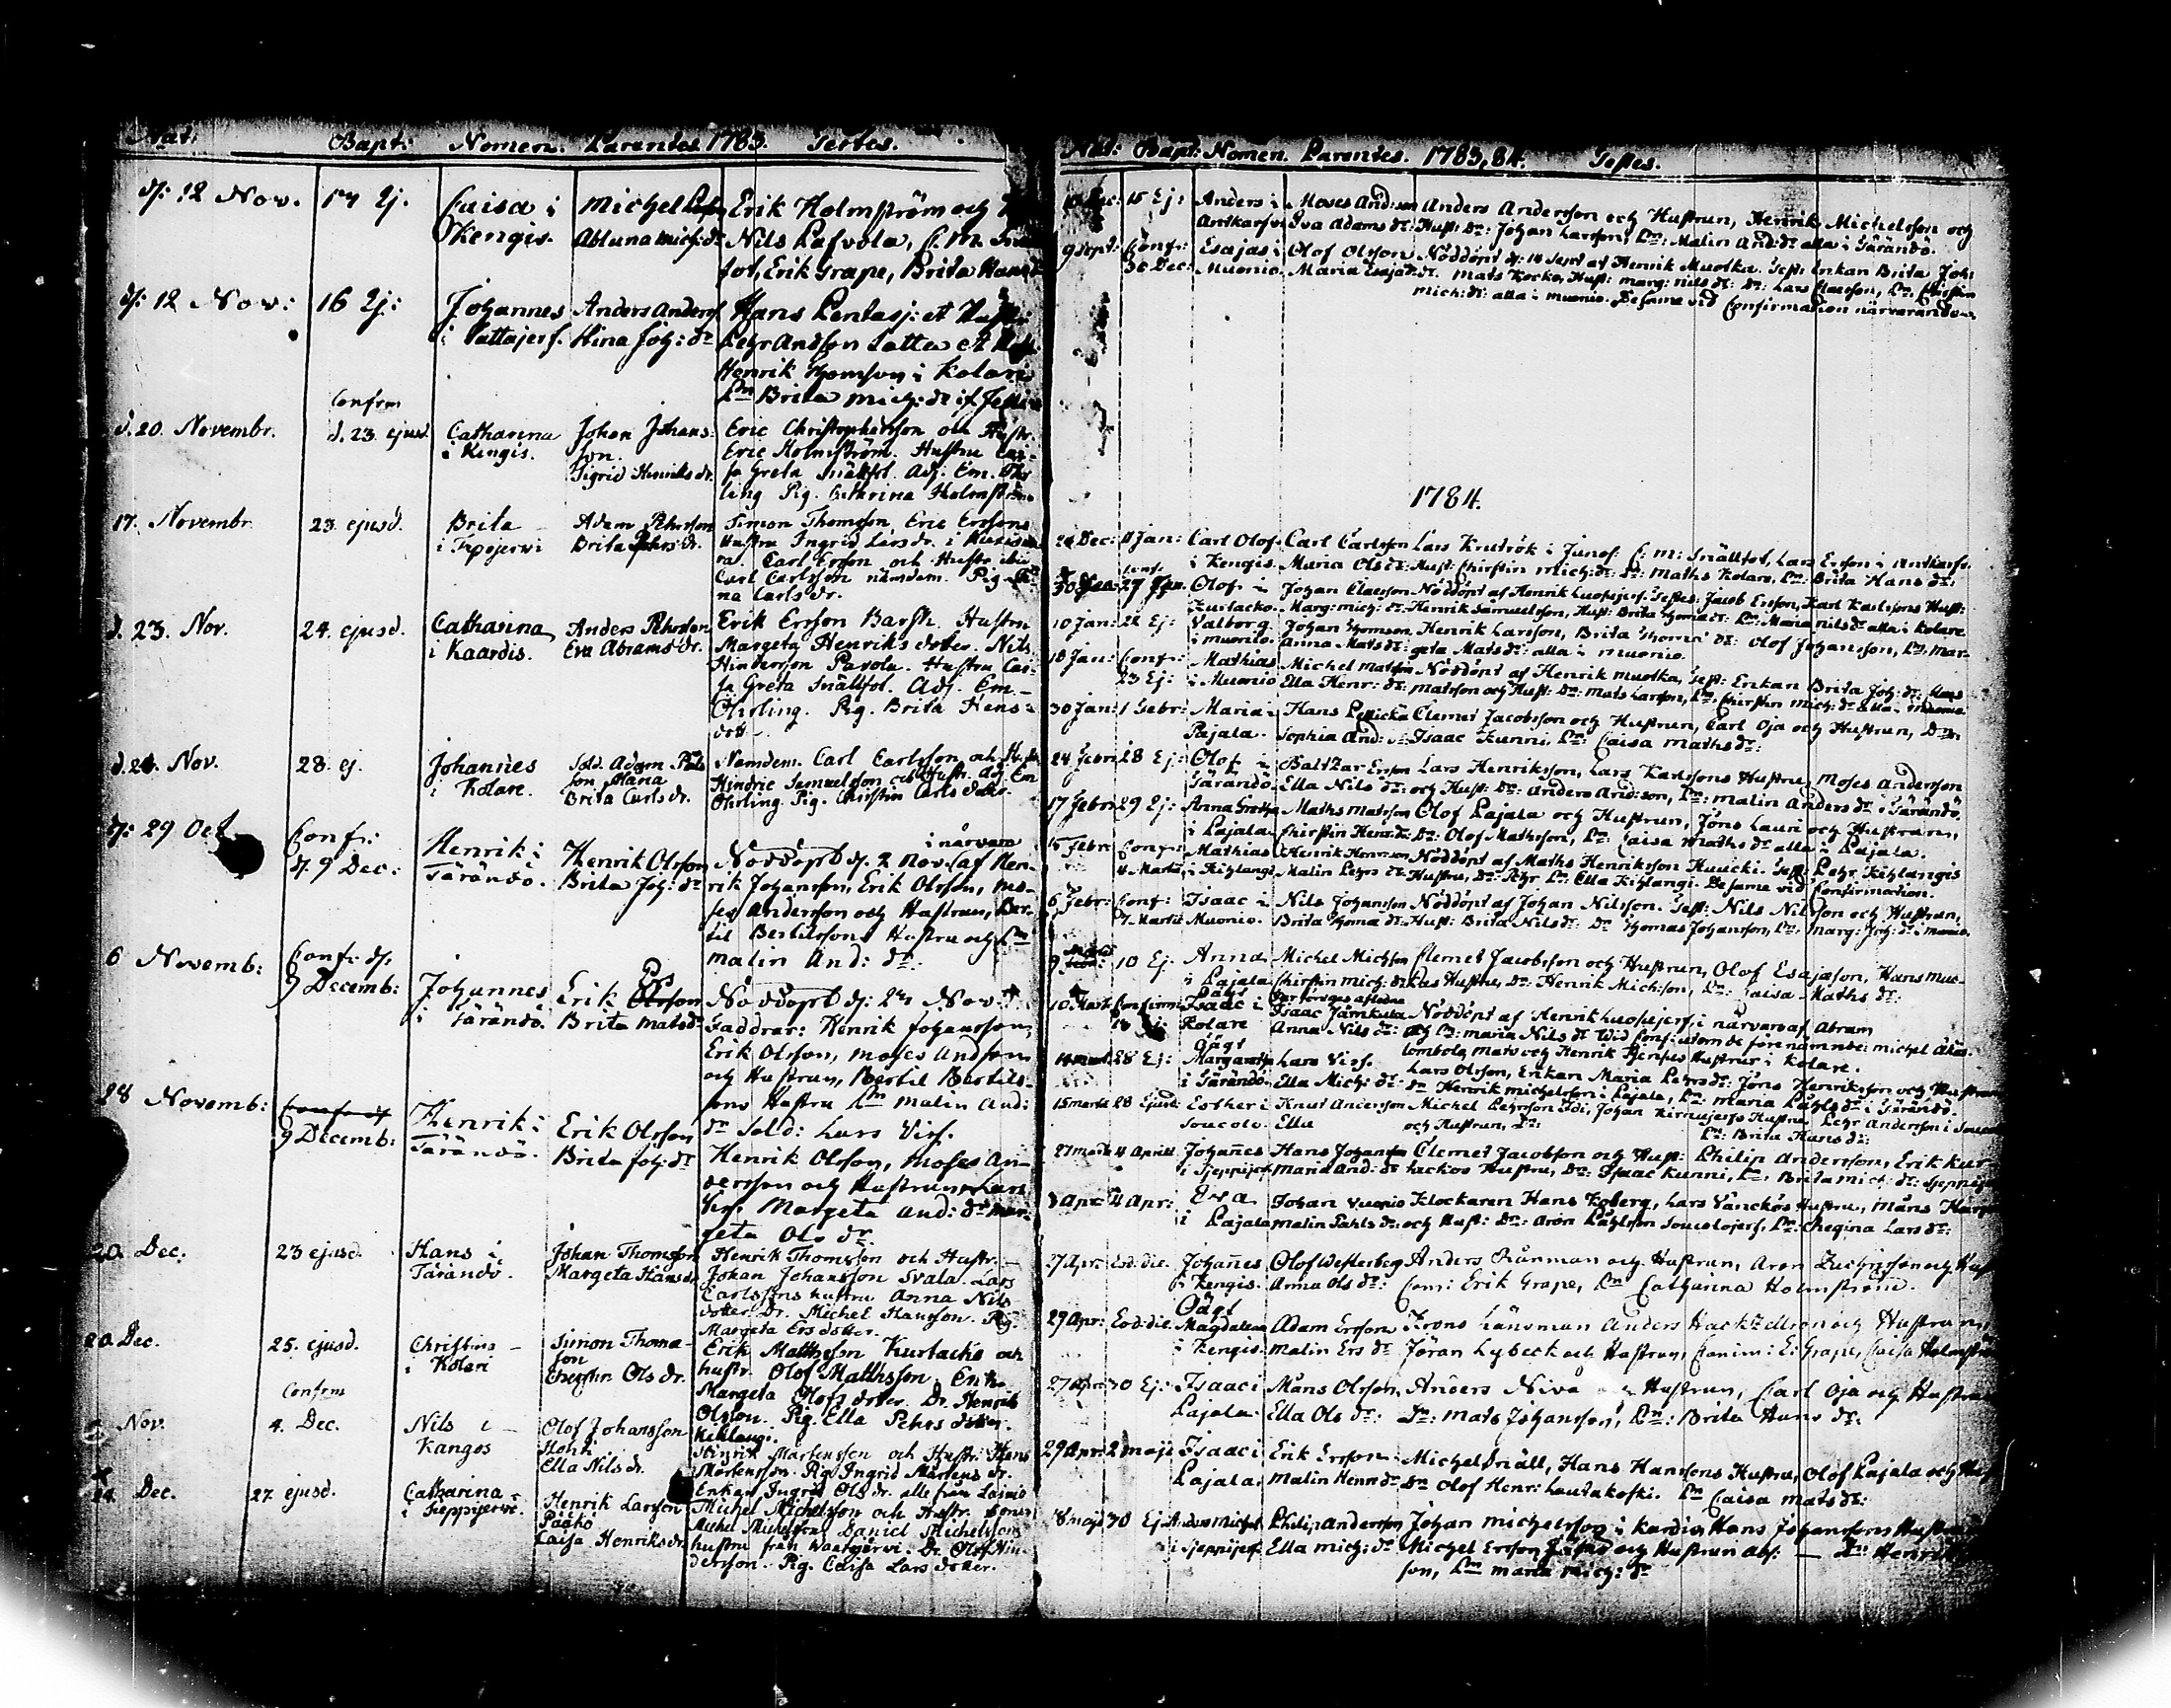 Nat: Bapt: Nomen. Parentes 1783. Testes.
d: 12 Nov. 17 Ej. Caisa i Michel Erik Holmström och
Kengis. Abluna Mich: dr Nils Lafvola, C. M. Snäll
fot, Erik Grape, Brita Hans dr
d: 12 Nov: 16 Ej: Johannes Anders Anders Hans Pentasj: et Hustr:
i Pattajerf. Stina Joh: dr Pehr Andsson Latta et Hust:
Henrik Thomson i Kolari
Pn Brita Mich: dr
Confrm
d. 20. Novembr. d. 23 ejusd Catharina Johan Johans- Eric Christophersson och Hustr.
i Kengis. son. Eric Holmström. Hustru Cai-
Sigrid Henriks dr. sa Greta Snällfot. Adj. Em. Öhr
ling Pig. Cathrina Holmström
17. Novembr. 23. ejusd. Brita Adam Pehrsson Simon Thomsson, Eric Erssons
i Brita Pehrs dr. Hustru Ingrid Lars dr. i
Carl Ersson och Hustr. ibid
Carl Carlsson nämdem. Pig
na Carls dr.
d. 23. Nov. 24. ejusd. Catharina Anders Pehrsson Erik Ersson Barsk. Hustru
i Kaardis. Eva Abrams dr. Margeta Henriks dotter. Nils
Hindersson Pavola. Hustru Cai-
sa Greta Snällfot. Adj. Em.
Öhrling. Pig. Brita Hens-
dott
d. 24. Nov. 28. ej. Johannes Sold. Adam Påls Nämdem. Carl Carlsson och Hustr
i Kolare. son Plana Hindric Samuelsson och Hustr. Adj Em
Brita Carls dr. Öhrling. Pig. Chirstin Carls dotter.
d: 29 Oct Conf: Henrik i Henrik Olsson Nöddöpt d. 2 Nov. i närvaro af Hen-
d: 9 Dec: Tärändö. Brita Joh: dr rik Johansson, Erik Olsson, Mo-
ses Andersson och Hustrun, Ber-
til Bertilssons Hustru och Pn
Malin And: dr.
6 Novemb: Conf: d: Johannes Erik Ersson Nöddöpt d: 27 Nov:
9 Decemb: i Tärändö. Brita Mats dr Faddrar: Henrik Johansson,
Erik Olsson, Moses Andsson
och Hustrun, Bertil Bertils-
sons Hustru Pn Malin And:
dr Sold: Lars Virf.
28 Novemb: 9 Decemb: Henrik i Erik Olsson Henrik Olsson, Moses An-
Tärändö. Brita Joh: dr dersson och Hustrun, Lars
Virf, Margeta And: dr Mar-
geta Ols dr.
20. Dec. 23 ejusd. Hans i Johan Thomsson Henrik Thomsson och Hustr.
Tärändö. Margeta Hans dr Johan Johansson Svala. Lars
Carlssons hustru Anna Nils
dotter Dr. Michel Hansson. Pig.
Margeta Ers dotter.
20. Dec. 25. ejusd. Christina Simon Thoma- Erik Matthsson Kurtacko och
i Kolari son hustr. Olof Matthsson. Enk.
Cherstin Ols dr. Margeta Olofs dotter. Dr. Henrik
Olsson. Pig. Ella Pehrs dotter.
Kiklangi.
Confrm
Nov. 4. Dec. Nils i Olof Johansson Hinrik Mårtensson och Hustr. Hans
Kangos Ella Nils dr. Mårtensson. Pig. Ingrid Mårtens dr.
Enkan Ingrid Ols dr. alle från
24. Dec. 27. ejusd. Catharina Henrik Larsson Michel Michelsson och Hustr.
i Sieppijervi. Pääkö Michel Michelsson, Daniel Michelssons
Caisa Henriks dr. hustru från Waarajärvi. Dr. Olof Hin-
dersson. Pig. Caisa Lars dotter.
Nat: Bapt: Nomen. Parentes. 1783, 84. Testes.
Dec: 15 Ej: Anders i Moses And: son Anders Andersson och Hustrun, Henrik Michelsson och
Antkarfvi Eva Adams dr: Hust: Dr: Johan Larsson, Pn: Malin And: dr alla i Tärändö.
9 Sept: Conf: Esajas i Olof Olsson Nöddöpt d: 14 Sept af Henrik Muotka. Test: Enkan Brita Joh:
30 Dec: Muonio. Maria Esajæ dr. Mats Kocko, Hust: Marg: Nils dr: Dr: Lars Claesson, Pn Chirstin
Mich: dr: alla i Muonio. De samma vid Confirmation närvarande.
1784.
26 Dec: 11 Jan: Carl Olof Carl Carlsson Lars Knutrök i Junos: C: M: Snällfot, Lars Ersson i Antkarfv.
i Kengis. Maria Ols dr: Hust: Chirstin Mich: dr: Dr: Maths Kolare, Pn: Brita Hans dr:
Conf:
30 27 Jan. Olof i Johan Claesson Nöddöpt af Henrik Luosujerf. Testes: Jacob Ersson, Karl Karlssons Hust:
Kurtacko. Marg: Mich: dr: Henrik Samuelsson, Hust: Brita Thomæ dr: Pn: Maria Nils dr alla i Kolare
10 Jan: 22 Ej: Valborg Johan Thomsson Henrik Larsson, Brita Thomæ dr: Olof Johansson, Pn: Mar-
i Muonio Anna Mats dr: geta Mats dr: alla i Muonio.
18 Jan: Conf: Mathias Michel Matsson Nöddöpt af Henrik Muotka, Test: Enkan Brita Joh: dr: Hans
23 Ej: i Muonio Ella Henr: dr: Matsson och Hust: Dr: Mats Larsson, Pn Chirstin Mich: dr alla i Muonio
30 Jan: 1 Febr: Maria i Hans Pellicka Clemet Jacobsson och Hustrun, Carl Oja och Hustrun, Dr:
Pajala. Sophia And: dr Isaac Kunni, Pn: Caisa Maths dr:
24 Febr: 28 Ej: Olof i Baltzar Ersson Lars Henriksson, Lars Karlssons Hustru, Moses Andersson
Tärändö. Ella Nils dr: och Hust: Dr: Anders And: son, Pn: Malin Anders dr i Tärändö.
17 Febr: 29 Ej: Anna Greta Maths Matsson Olof Pajala och Hustrun, Jöns Lauri och Hustrun,
i Pajala. Chirstin Henr: dr: Dr: Olof Mathsson, Pn Caisa Maths dr alla i Pajala.
15 Febr: Conf: Mathias Henrik Henrsson Nöddöpt af Maths Henriksson Huuki. Test: Pehr Kihlangis
4 Martii i Kihlangi. Malin Pehrs dr: Hustru, Dr: Pehr Pn: Ella Kihlangi. De samme vid Confirmation.
6 Febr: Conf: Isaac i Nils Johansson Nöddöpt af Johan Nilsson. Test: Nils Nilsson och Hustrun,
7 Martii Muonio. Brita Thomæ dr: Hust: Brita Nils dr: Dr Thomas Johansson, Pn: Marg: Joh: dr: i Muonio.
9 Martii 10 Ej: Anna Michel Michsson Clemet Jacobsson och Hustrun, Olof Esajæson, Hans Muc-
i Pajala Chirstin Mich: dr Hustru, Dr: Henrik Mich: son, Pn: Caisa Maths dr:
10 Mart: Confirm: Oägt Isaac i
18 Ej: Kolare Isaac Jämkuta Nöddöpt af Henrik Luosujerf, i närvaro af Abram
Anna Nils dr: och Pn: Maria Nils dr Wid Conf: utom de förenämnde: Michel Äkäs-
lombolo, Mats och Henrik Hustrur i Kolare.
14 Mart: 28 Ej: Oägt Margaretha Lars Virf. Lars Olsson, Enkan Maria Pehrs dr: Jöns Henriksson och Hustrun
i Tärändö. Ella Mich: dr: Dr Henrik Michelsson i Pajala, Pn: Maria Påhls dr: i Tärändö.
15 Martii 28 Ejusd: Esther i Knut Andersson Michel Pehrsson Idi, Johan Kirnujerfs Hustru, Pehr Andersson i
Soucolo. Ella och Hustrun, Dr: Pn: Brita Hans dr:
27 Martii 4 Aprill Johannes Hans Johansson Clemet Jacobsson och Hust: Philip Andersson, Erik Kur-
i Sjeppijerf. Maria And: dr tackos Hustru, Dr: Isaac Kunni, Pn: Brita Mich: dr: Sjeppijerf
3 Apr: 4 Apr: Eva Johan Vuonio Klockaren Hans Forberg, Lars Vänckös Hustru, Måns
i Pajala Malin Pahls dr: och Hust: Dr: Aron Påhlsson Souolojerf, Pn: Chegina Lars dr:
27 Apr: Eod: die. Johannes Olof Westerberg Anders Rånman och Hustrun, Aron Zachrisson och Hust
i Kengis. Anna Ols dr: Com: Erik Grape, Pn Catharina Holmström.
29 Apr: Eod: die. Oägt Magdalena Adam Ersson Krono Länsman Anders Hackzellron och Hustrun,
i Kengis. Malin Ers dr Jöran Lybeck och Hustrun, Comin: E: Grape, Caisa Holmström
27 Apr: 30 Ej: Isaac i Måns Olsson, Anders Niva och Hustrun, Carl Oja och Hustrun
Pajala. Ella Ols dr: Dr: Mats Johansson, Pn: Brita Hans dr.
29 Apr: 2 Maji Isaac i Erik Ersson Michel Snäll, Hans Hanssons Hustru, Olof Pajala och Hust
Pajala. Malin Henr: dr Dr Olof Henr: Lautakoski. Pn Caisa Mats dr:
18 Maji 30 Ej: Anders Michel Philip Andersson Johan Michelsson i Kardis, Hans Johanssons Hustru
i Sjeppijerf. Ella Mich: dr Michel Ersson och Hustrun abs: — Dr: Henrik
son, Pn Maria Mich: dr